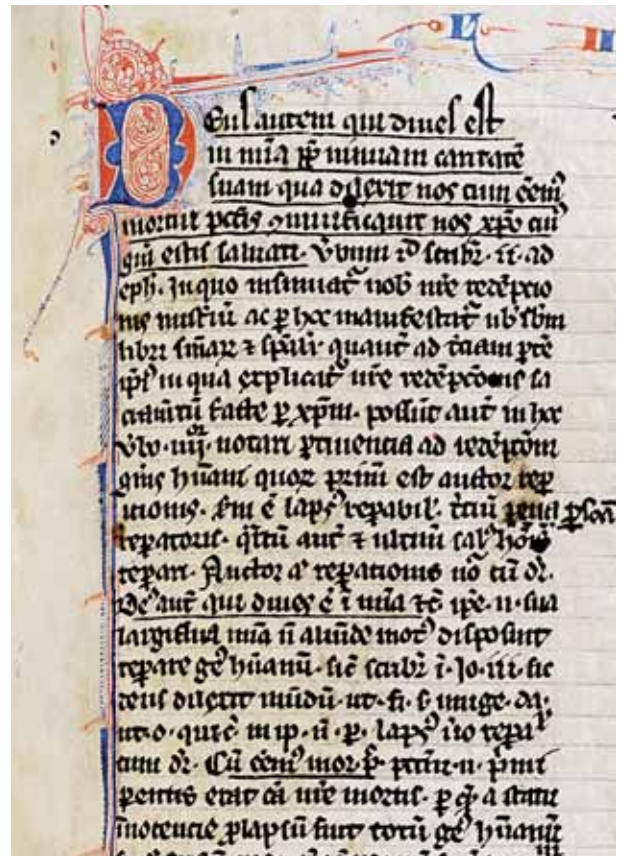 Deus autem qui diues est
in mīa ꝓpt̄ nimiam caritatē
suam qua dilexit nos cum eēm̄
mortui pctīs ꝯuiuificauit nos xpō cui᷒
grā estis saluati. v̄bum ꝛd scribr̄. ii. ad
eph. In quo insinuat᷑ nob̄ nr̄e redēptio
nis mist̄iū ac ꝑ hoc manifestat᷑ nb̄ sbm
libri sūmar̄ ⁊ sp̄alr̄ quantū ad t̄ciam ꝑtē
ip̄i᷒ in qua explicat᷑ nr̄e redēpcōnis sa
cramētū facte ꝑ xpm̄. possūt aut̄ in hoc
v̄bo. iiij. notari ꝑtinencia ad redēpcōm
gn̄is hūani quoꝝ primū est auctor repa
tionis. sm̄ ē laps᷒ repabil̄. t̄ciū ꝑsōa
repatoris. qr̄tū aut̄ ⁊ ultimū sal᷒ hoīs
repati. Auctor a̅ repationis no᷑ cū dr̄.
De᷒ aut̄ qui diues ē ī mīa ⁊c̄ ip̄e. n. sua
largiflua mīa n̄ aliūde mot᷒ disposuit
repare gen᷒ hūanū. sic̄ scribr̄ ī. Jo. iii. sic
deus dilexit mūdū. ut. fi. s. unige. da
ut. o. qui c̄. in ip. n̄. p. laps᷒ u̅o repa
tum dr̄. Cū eēm᷒ mor. p̄. peccm̄. n. pmi
parentis erat cā nr̄e mortis. ꝑ qd̄ a statu
īnocencie ꝓlapsū fuit totū gen᷒ hūanū